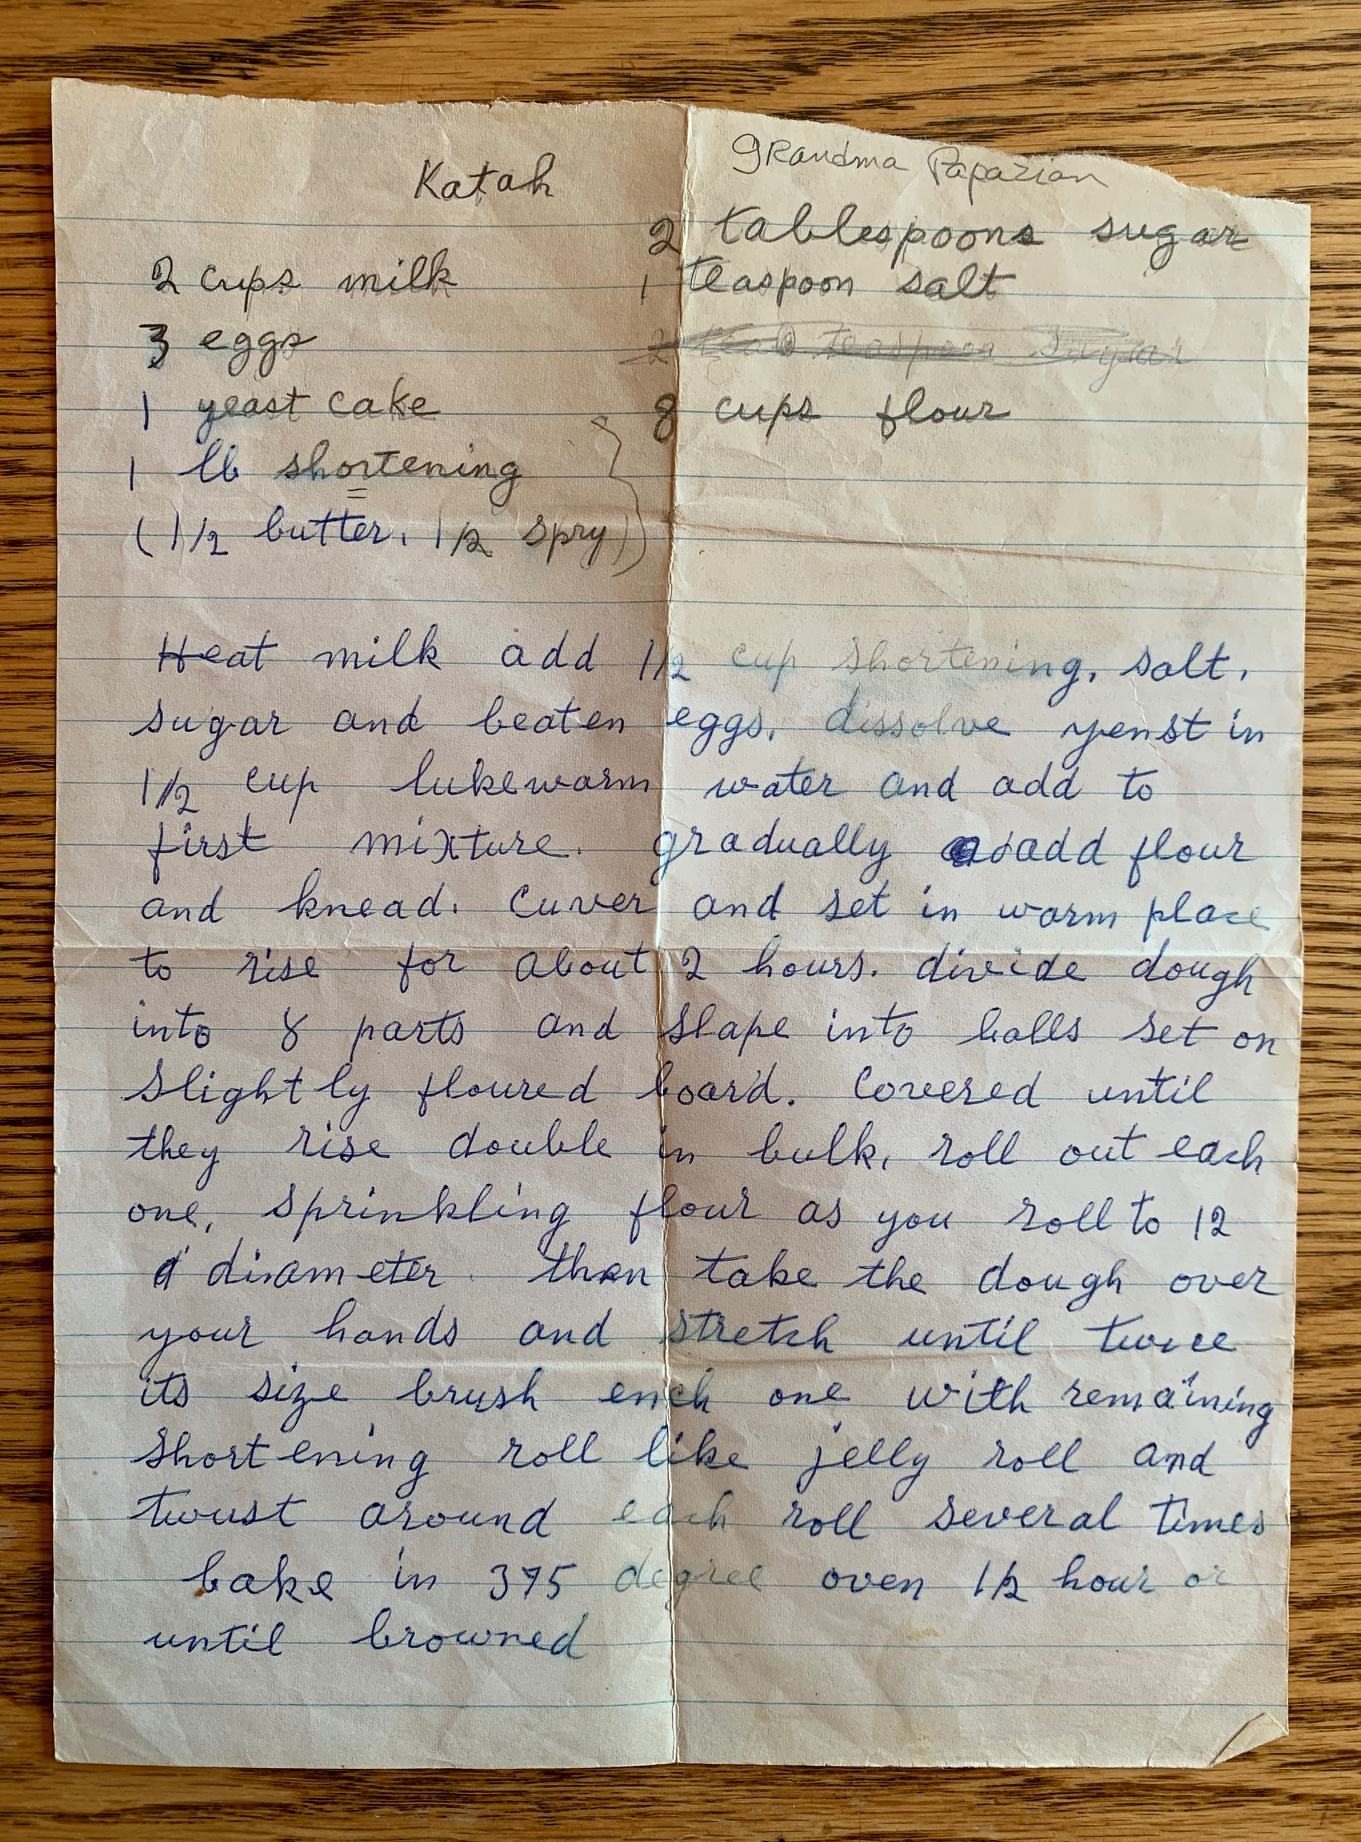 Katah
Grandma Papazian
2 cups milk
3 eggs
1 yeast cake
1 lb shortening
(1/2 butter, 1/2 spry)
2 tablespoons sugar
1 teaspoon salt
2 teaspoon sugar
8 cups flour
Heat milk add 1/2 cup shortening, salt,
sugar and beaten eggs. dissolve yenst in
1/2 cup lukewarm water and add to
first mixture. gradually add flour
and knead. Cuver and set in warm place
to rise for about 2 hours. divide dough
into 8 parts and slape into balls set on
slightly floured board. Covered until
they rise double in bulk, roll out each
one, sprinkling flour as you roll to 12
diameter then take the dough over
your hands and stretch until twice
its size brush ench one with remaining
shortening roll like jelly roll and
twust around each roll several times
bake in 375 degree oven 1/2 hour or
until browned